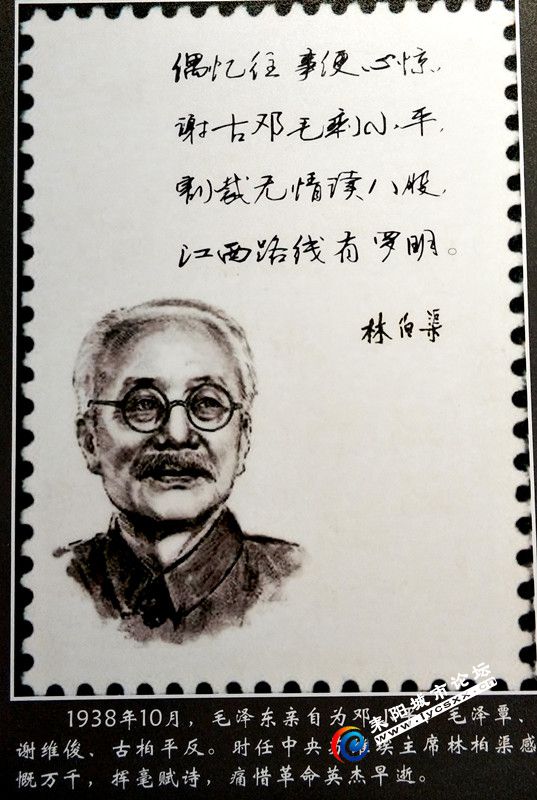 偶忆往事便心惊，
谢古邓毛剩小平，
剸裁无情读八股，
江西路线有罗明。
林伯渠
耒阳城市论坛
www.lycsxx.cn
1938年10月，毛泽东亲自为邓 毛泽覃、
谢维俊、古柏平反。时任中央 主席林柏渠感
慨万千，挥毫赋诗，痛惜革命英杰早逝。